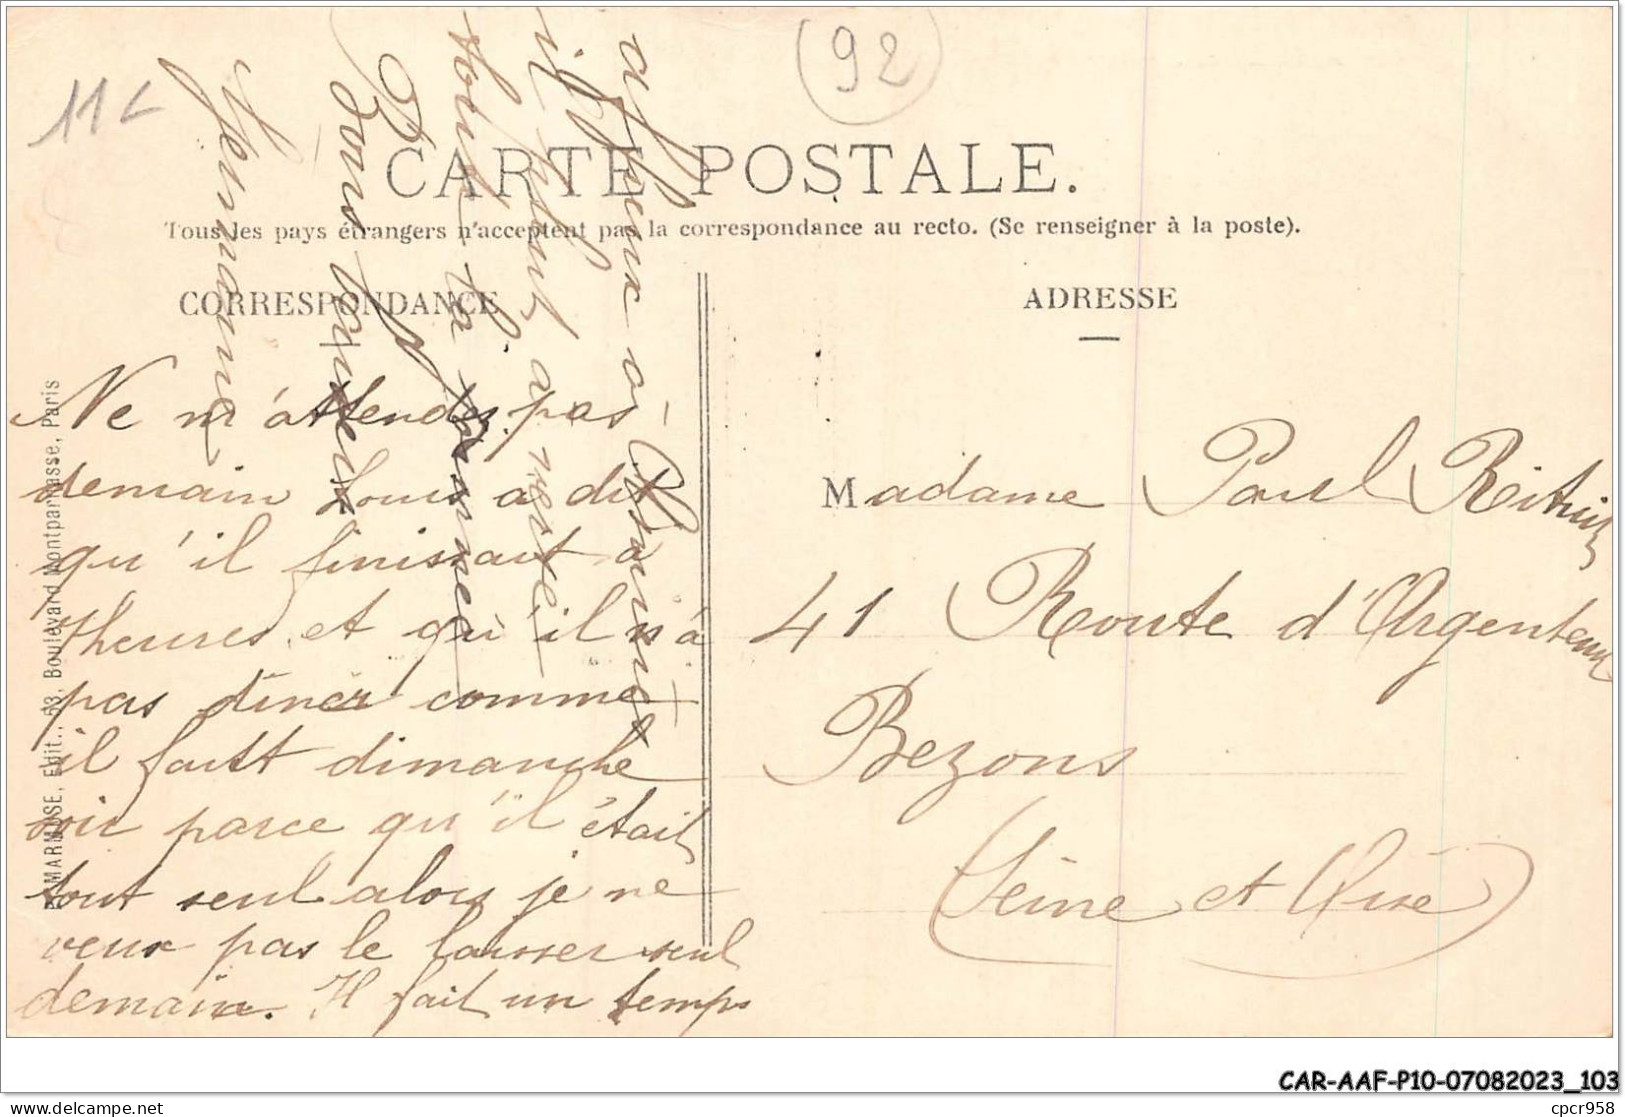 11
92
CARTE POSTALE.
Tous les pays étrangers n'acceptent pas la correspondance au recto. (Se renseigner à la poste).
CORRESPONDANCE
ADRESSE
Ne m'attendez pas
demain Louis a dit
qu'il finissait à
7 heures et qu'il n'a
pas diner comme
il fait dimanche
soir parce qu'il était
tout seul alors je ne
veux pas le laisser seul
demain. Il fait un temps
affreux à
il pleut a
toute la
Bons baisers
Germaine
Madame Paul
41 Route d'Argenteuil
Bezons
Seine et Oise
MARMUSE, Edit., 53, Boulevard Montparnasse, Paris
CAR-AAF-P10-07082023_103
delcampe.net
cpcr958